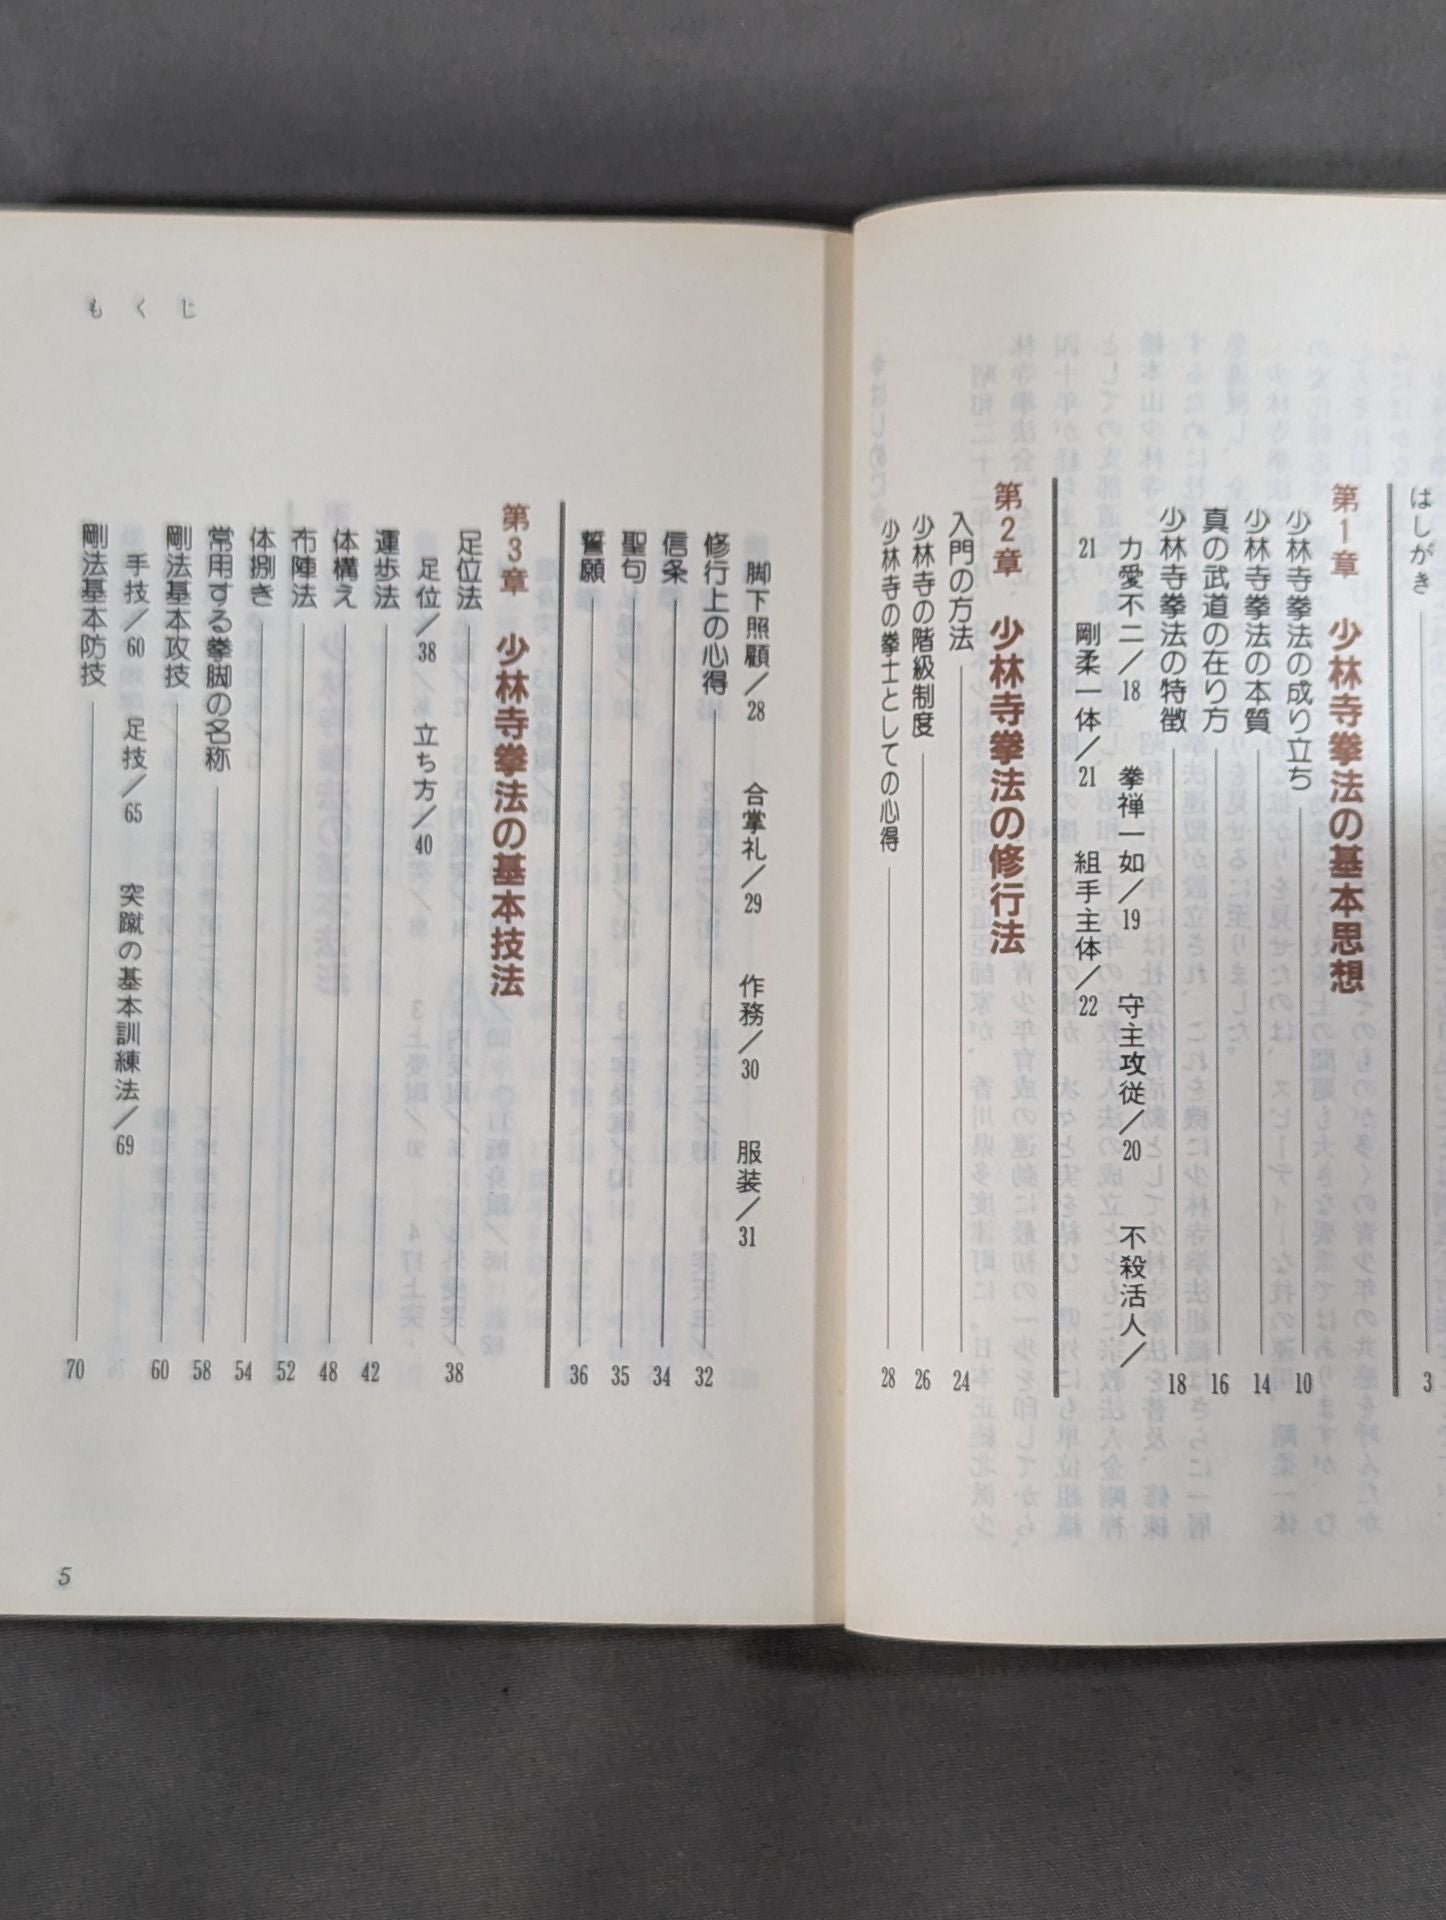 はしがき 3
第1章 少林寺拳法の基本思想
少林寺拳法の成り立ち 10
少林寺拳法の本質 14
真の武道の在り方 16
少林寺拳法の特徴 18
力愛不二／18 拳禅一如／19 守主攻従／20 不殺活人／
21 剛柔一体／21 組手主体／22
第2章 少林寺拳法の修行法
入門の方法 24
少林寺の階級制度 26
少林寺の拳士としての心得 28
もくじ
脚下照顧／28 合掌礼／29 作務／30 服装／31
修行上の心得 32
信条 34
聖句 35
誓願 36
第3章 少林寺拳法の基本技法
足位法 38
足位／38 立ち方／40
運歩法 42
体構え 48
布陣法 52
体捌き 54
常用する拳脚の名称 58
剛法基本攻技 60
手技／60 足技／65 突蹴の基本訓練法／69
剛法基本防技 70
5